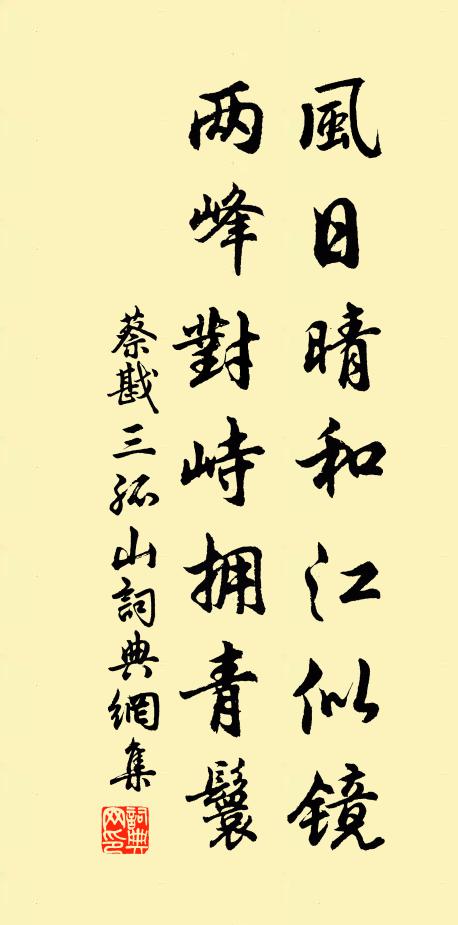 風日晴和江似鏡
两峰對峙拥青鬟
蔡戡三孤山詞典網集
詞典网印